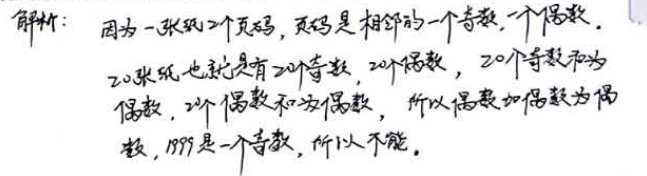 解析：因为一张纸2个页码，页码是相邻的一个奇数，一个偶数．
20张纸也就是有20个奇数，20个偶数，20个奇数和为
偶数，20个偶数和为偶数，所以偶数加偶数为偶
数，1999是一个奇数，所以不能．